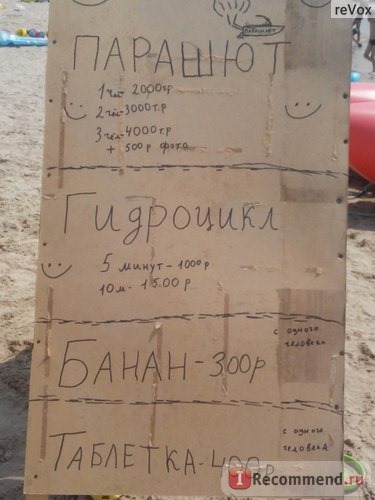 reVox
ПАРАШЮТ
1 чел 2000 т.р
2 чел-3000 т.р
3 чел-4000 т.р
+ 500р фото
Гидроцикл
5 минут - 1000 р
10 м - 1500 р.
с одного
человека
БАНАН-300р
с одного
человека
ТАБЛЕТКА-400р
iRecommend.ru